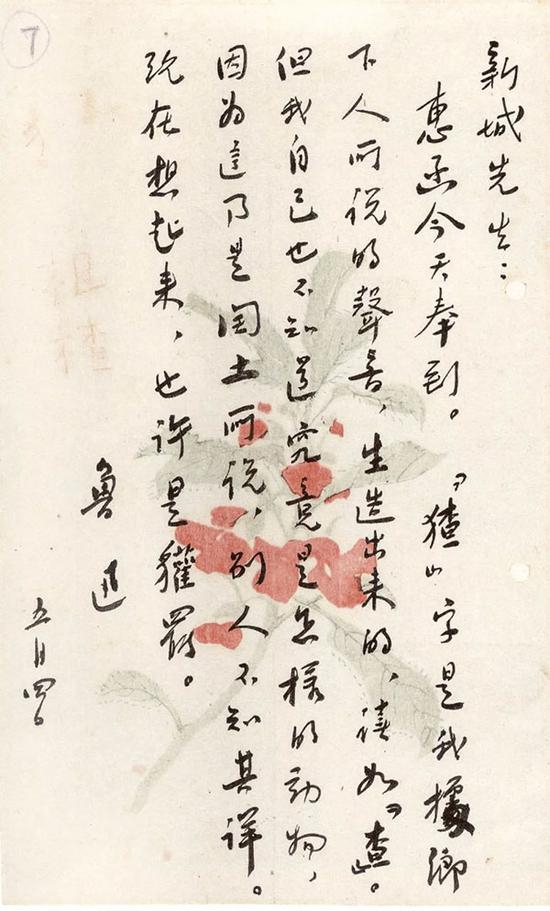 7
新城先生：
惠函今天奉到。『猹』字是我據鄉
下人所说的聲音，生造出来的，读如『查』。
但我自己也不知道究竟是怎様的動物，
因为這乃是闰土所说，别人不知其详。
现在想起来，也许是獾罢。
魯迅
五月四日